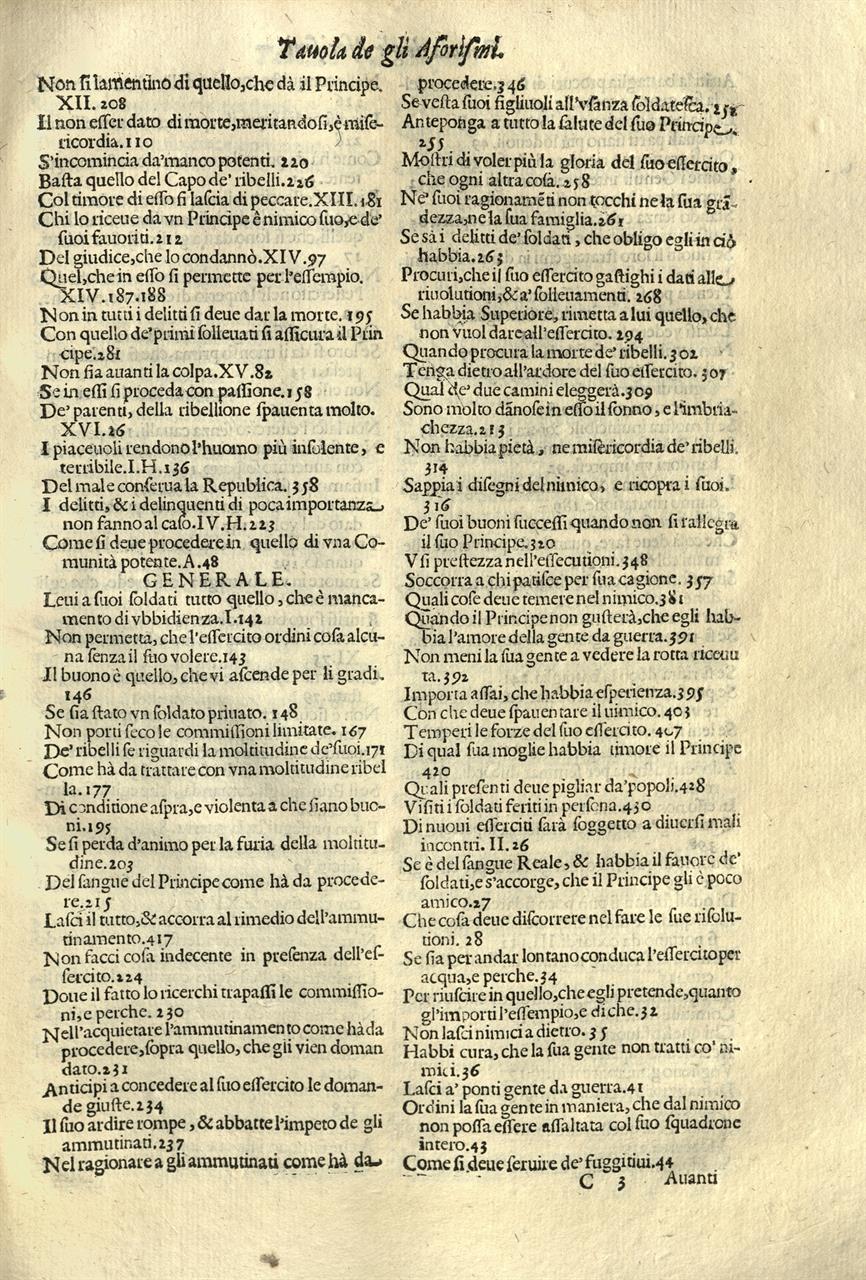 Tauola de gli Aforismi.
Non si lamentino di quello, che dà il Principe.
XII. 208
Il non esser dato di morte, meritandosi, è mise-
ricordia. 110
S'incomincia da' manco potenti. 220
Basta quello del Capo de' ribelli. 226
Col timore di esso si lascia di peccare. XIII. 181
Chi lo riceue da vn Principe è nimico suo, e de'
suoi fauoriti. 212
Del giudice, che lo condannò. XIV. 97
Quel, che in esso si permette per l'essempio.
XIV. 187. 188
Non in tutti i delitti si deue dar la morte. 195
Con quello de' primi solleuati si assicura il Prin
cipe. 281
Non sia auanti la colpa. XV. 82
Se in essi si proceda con passione. 158
De' parenti, della ribellione spauenta molto.
XVI. 26
I piaceuoli rendono l'huomo più insolente, e
terribile. I. H. 136
Del male conserua la Republica. 358
I delitti, & i delinquenti di poca importanza
non fanno al caso. IV. H. 223
Come si deue procedere in quello di vna Co-
munità potente. A. 48
GENERALE.
Leui a suoi soldati tutto quello, che è manca-
mento di vbbidienza. I. 142
Non permetta, che l'essercito ordini cosa alcu-
na senza il suo volere. 143
Il buono è quello, che vi ascende per li gradi.
146
Se sia stato vn soldato priuato. 148
Non porti seco le commissioni limitate. 167
De' ribelli se riguardi la moltitudine de' suoi. 171
Come hà da trattare con vna moltitudine ribel
la. 177
Di conditione aspra, e violenta a che siano buo-
ni. 195
Se si perda d'animo per la furia della moltitu-
dine. 203
Del sangue del Principe come hà da procede-
re. 215
Lasci il tutto, & accorra al rimedio dell'ammu-
tinamento. 417
Non facci cosa indecente in presenza dell'es-
sercito. 224
Doue il fatto lo ricerchi trapassi le commissio-
ni, e perche. 230
Nell'acquietare l'ammutinamento come hà da
procedere, sopra quello, che gli vien doman
dato. 231
Anticipi a concedere al suo essercito le doman-
de giuste. 234
Il suo ardire rompe, & abbatte l'impeto de gli
ammutinati. 237
Nel ragionare a gli ammutinati come hà da
procedere. 346
Se vesta suoi figliuoli all'vsanza soldatesca. 252
Anteponga a tutto la salute del suo Principe.
255
Mostri di voler più la gloria del suo essercito,
che ogni altra cosa. 258
Ne' suoi ragionamēti non tocchi ne la sua grā-
dezza, ne la sua famiglia. 261
Se sà i delitti de' soldati, che obligo egli in ciò
habbia. 263
Procuri, che il suo essercito gastighi i dati alle
riuolutioni, & a' solleuamenti. 268
Se habbia Superiore, rimetta a lui quello, che
non vuol dare all'essercito. 294
Quando procura la morte de' ribelli. 302
Tenga dietro all'ardore del suo essercito. 307
Qual de' due camini eleggerà. 309
Sono molto dānose in esso il sonno, e l'imbria-
chezza. 213
Non habbia pietà, ne misericordia de' ribelli.
314
Sappia i disegni del nimico, e ricopra i suoi.
316
De' suoi buoni successi quando non si rallegra
il suo Principe. 320
Vsi prestezza nell'essecutioni. 348
Soccorra a chi patisce per sua cagione. 357
Quali cose deue temere nel nimico. 381
Quando il Principe non gusterà, che egli hab-
bia l'amore della gente da guerra. 391
Non meni la sua gente a vedere la rotta riceuu
ta. 392
Importa assai, che habbia esperienza. 395
Con che deue spauentare il uimico. 403
Temperi le forze del suo essercito. 407
Di qual sua moglie habbia timore il Principe
420
Quali presenti deue pigliar da' popoli. 428
Visiti i soldati feriti in persona. 430
Di nuoui esserciti sarà soggetto a diuersi mali
incontri. II. 26
Se è del sangue Reale, & habbia il fauore de'
soldati, e s'accorge, che il Principe gli è poco
amico. 27
Che cosa deue discorrere nel fare le sue risolu-
tioni. 28
Se sia per andar lontano conduca l'essercito per
acqua, e perche. 34
Per riuscire in quello, che egli pretende, quanto
gl'importi l'essempio, e di che. 32
Non lasci nimici a dietro. 35
Habbi cura, che la sua gente non tratti co' ni-
mici. 36
Lasci a' ponti gente da guerra. 41
Ordini la sua gente in maniera, che dal nimico
non possa essere assaltata col suo squadrone
intero. 43
Come si deue seruire de' fuggitiui. 44
C 3 Auanti